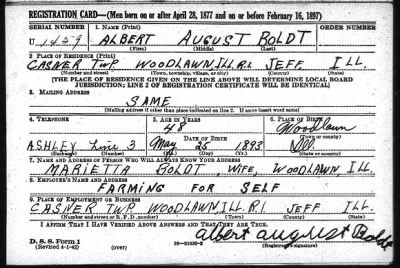 REGISTRATION CARD—(Men born on or after April 28, 1877 and on or before February 16, 1897)
SERIAL NUMBER 1. NAME (Print) ORDER NUMBER
U 1459 ALBERT AUGUST BOLDT
(First) (Middle) (Last)
2. PLACE OF RESIDENCE (Print)
CASNER TWP. WOODLAWN, ILL. R.1. JEFF ILL.
(Number and street) (Town, township, village, or city) (County) (State)
[THE PLACE OF RESIDENCE GIVEN ON THE LINE ABOVE WILL DETERMINE LOCAL BOARD
JURISDICTION; LINE 2 OF REGISTRATION CERTIFICATE WILL BE IDENTICAL]
3. MAILING ADDRESS
SAME
(Mailing address if other than place indicated on line 2. If same insert word same)
4. TELEPHONE 5. AGE IN YEARS 6. PLACE OF BIRTH
48 Woodlawn
DATE OF BIRTH (Town or county)
ASHLEY Line 3 May 25 1893 Ill.
(Exchange) (Number) (Mo.) (Day) (Yr.) (State or country)
7. NAME AND ADDRESS OF PERSON WHO WILL ALWAYS KNOW YOUR ADDRESS
MARIETTA BOLDT, WIFE, WOODLAWN ILL.
8. EMPLOYER'S NAME AND ADDRESS
FARMING FOR SELF
9. PLACE OF EMPLOYMENT OR BUSINESS
CASNER TWP. WOODLAWN ILL. R.1. JEFF ILL.
(Number and street or R. F. D. number) (Town) (County) (State)
I AFFIRM THAT I HAVE VERIFIED ABOVE ANSWERS AND THAT THEY ARE TRUE.
D. S. S. Form 1 albert august Boldt
(Revised 4-1-42) (over) (Registrant's signature)